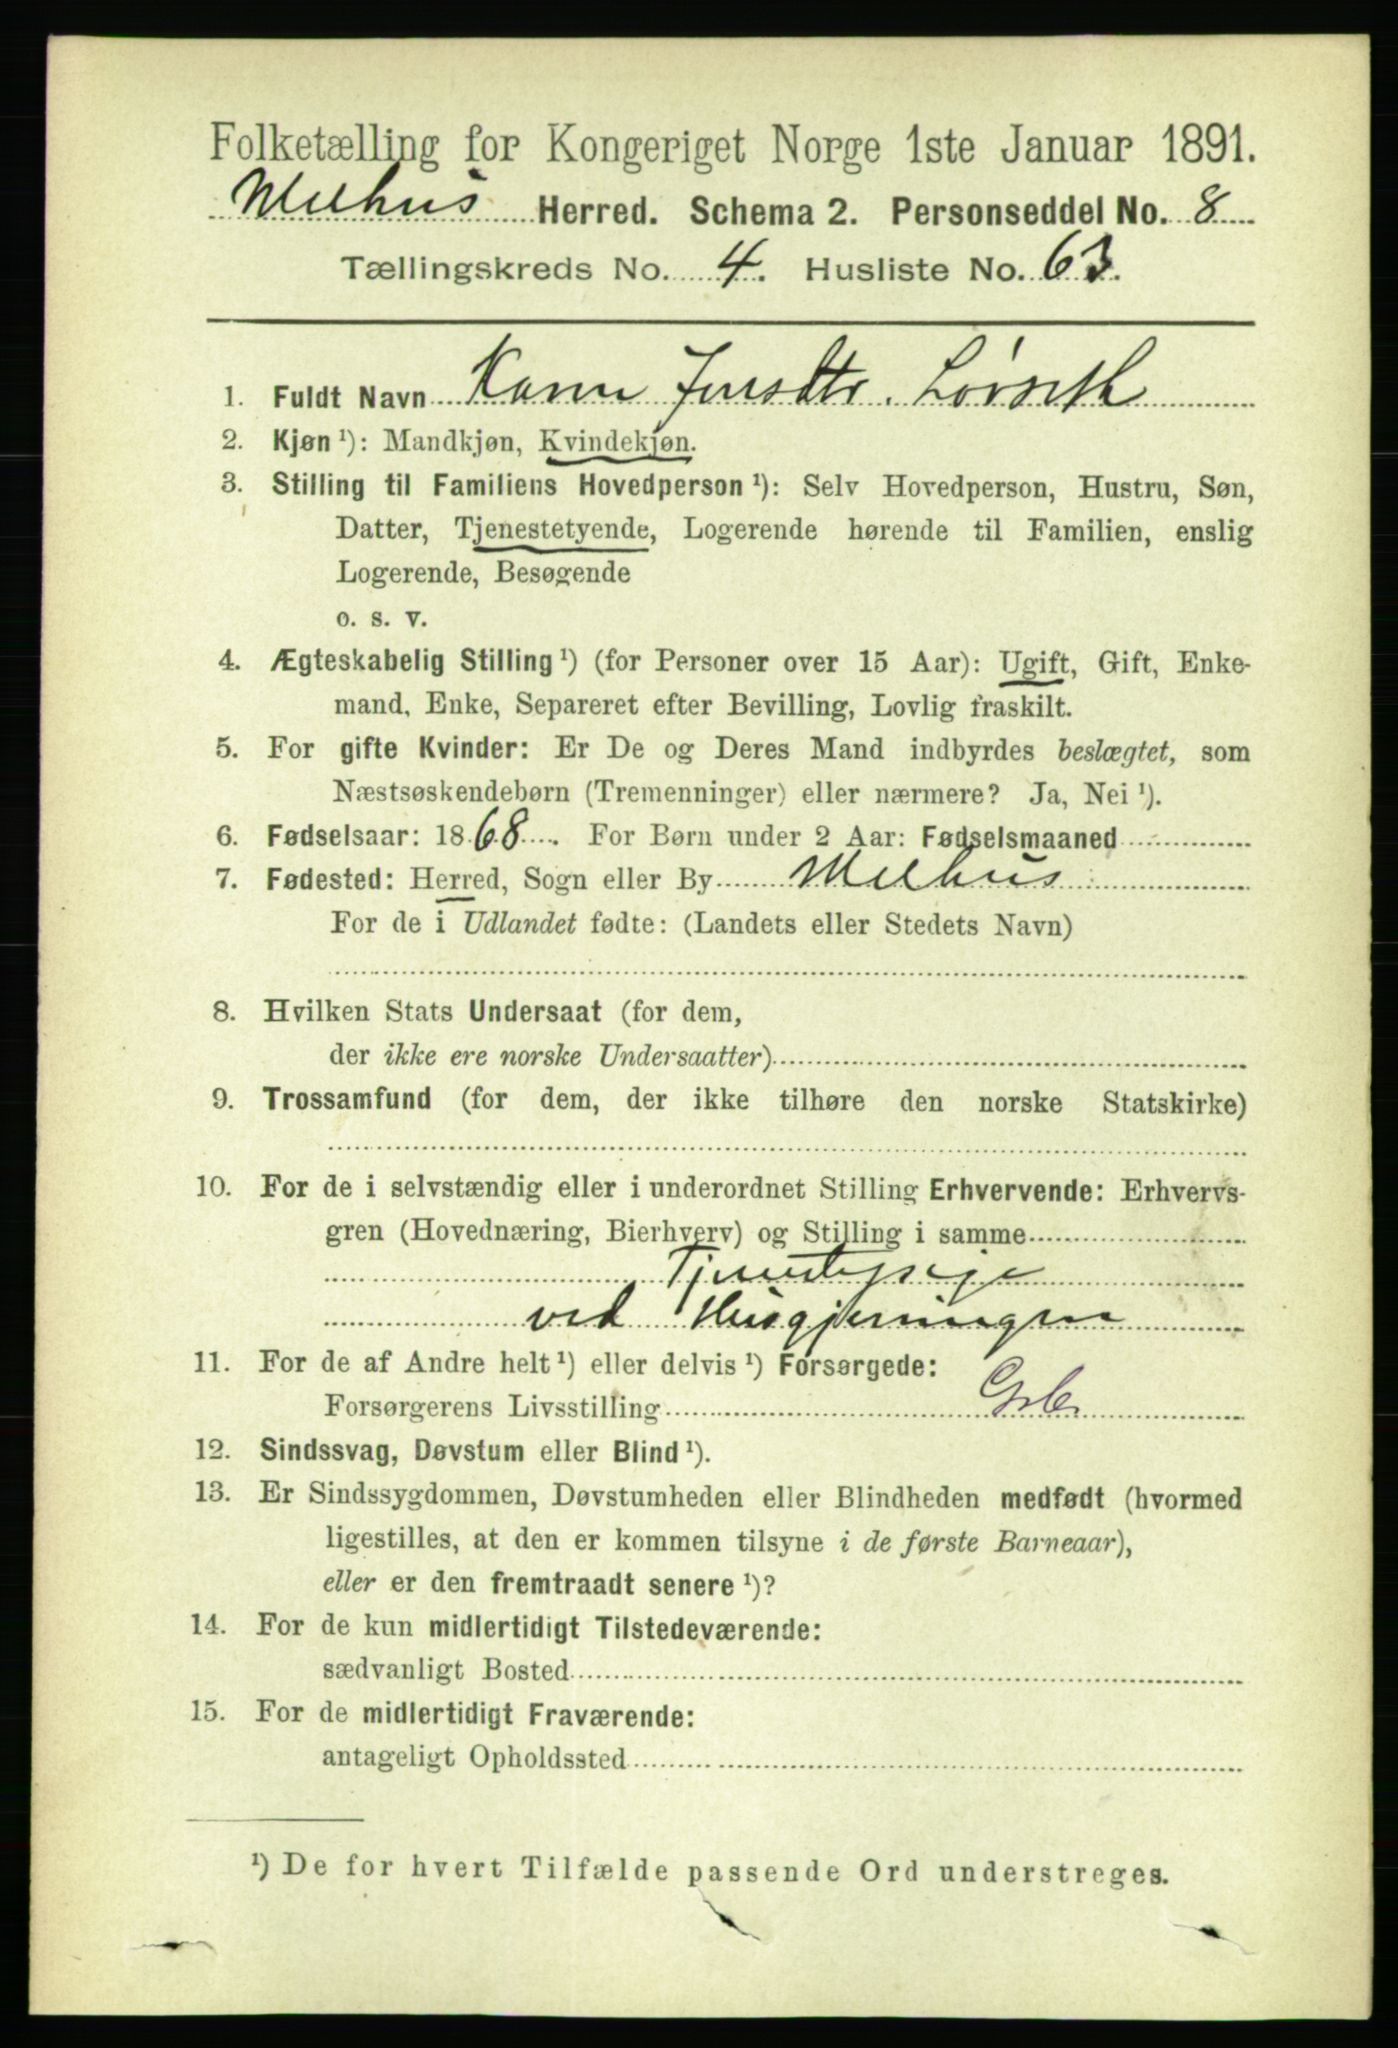 Folketælling for Kongeriget Norge 1ste Januar 1891.
Melhus Herred. Schema 2. Personseddel No. 8
Tællingskreds No. 4. Husliste No. 63.
1. Fuldt Navn Karen Jensdtr. Lörseth
2. Kjøn ¹): Mandkjøn, Kvindekjøn.
3. Stilling til Familiens Hovedperson ¹): Selv Hovedperson, Hustru, Søn,
Datter, Tjenestetyende, Logerende hørende til Familien, enslig
Logerende, Besøgende
o. s. v.
4. Ægteskabelig Stilling ¹) (for Personer over 15 Aar): Ugift, Gift, Enke-
mand, Enke, Separeret efter Bevilling, Lovlig fraskilt.
5. For gifte Kvinder: Er De og Deres Mand indbyrdes beslægtet, som
Næstsøskendebørn (Tremenninger) eller nærmere? Ja, Nei ¹).
6. Fødselsaar: 1868. For Børn under 2 Aar: Fødselsmaaned
7. Fødested: Herred, Sogn eller By Melhus
For de i Udlandet fødte: (Landets eller Stedets Navn)
8. Hvilken Stats Undersaat (for dem,
der ikke ere norske Undersaatter)
9. Trossamfund (for dem, der ikke tilhøre den norske Statskirke)
10. For de i selvstændig eller i underordnet Stilling Erhvervende: Erhvervs-
gren (Hovednæring, Bierhverv) og Stilling i samme
Tjenestepige
ved Husgjerningen
11. For de af Andre helt ¹) eller delvis ¹) Forsørgede:
Forsørgerens Livsstilling
12. Sindssvag, Døvstum eller Blind ¹).
13. Er Sindssygdommen, Døvstumheden eller Blindheden medfødt (hvormed
ligestilles, at den er kommen tilsyne i de første Barneaar),
eller er den fremtraadt senere ¹)?
14. For de kun midlertidigt Tilstedeværende:
sædvanligt Bosted
15. For de midlertidigt Fraværende:
antageligt Opholdssted
¹) De for hvert Tilfælde passende Ord understreges.